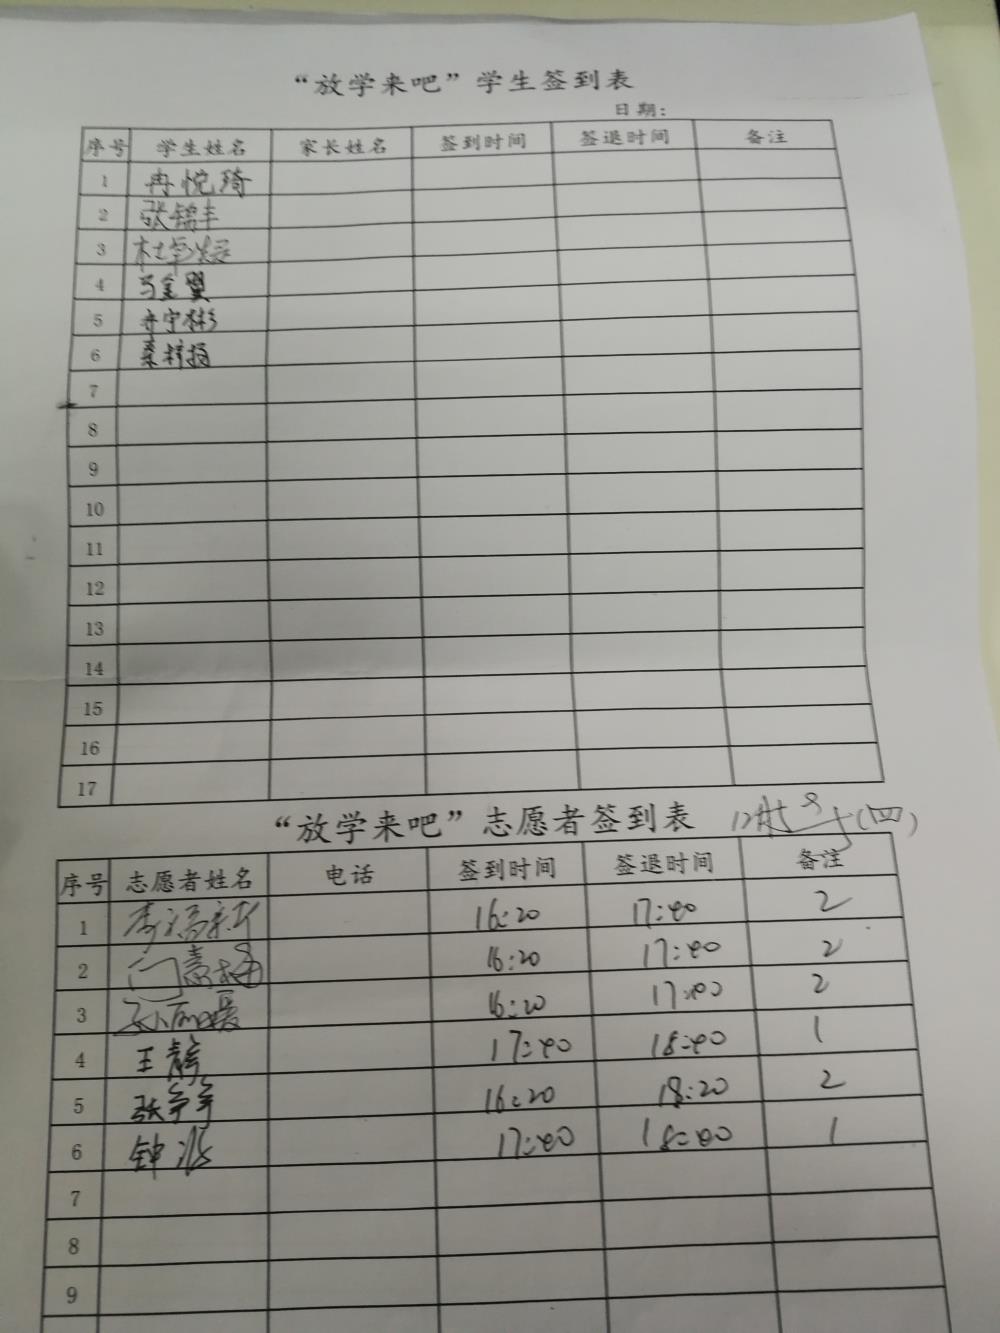 “放学来吧”学生签到表
日期：
序号 学生姓名 家长姓名 签到时间 签退时间 备注
1 冉悦琦
2 张锦丰
3
4 马金翼
5 宁彬
6
7
8
9
10
11
12
13
14
15
16
17
“放学来吧”志愿者签到表 (四)
序号 志愿者姓名 电话 签到时间 签退时间 备注
1 李 16:20 17:40 2
2 门 16:20 17:40 2
3 孙 16:20 17:40 2
4 王静 17:40 18:40 1
5 张 16:20 18:20 2
6 钟 17:40 18:40 1
7
8
9